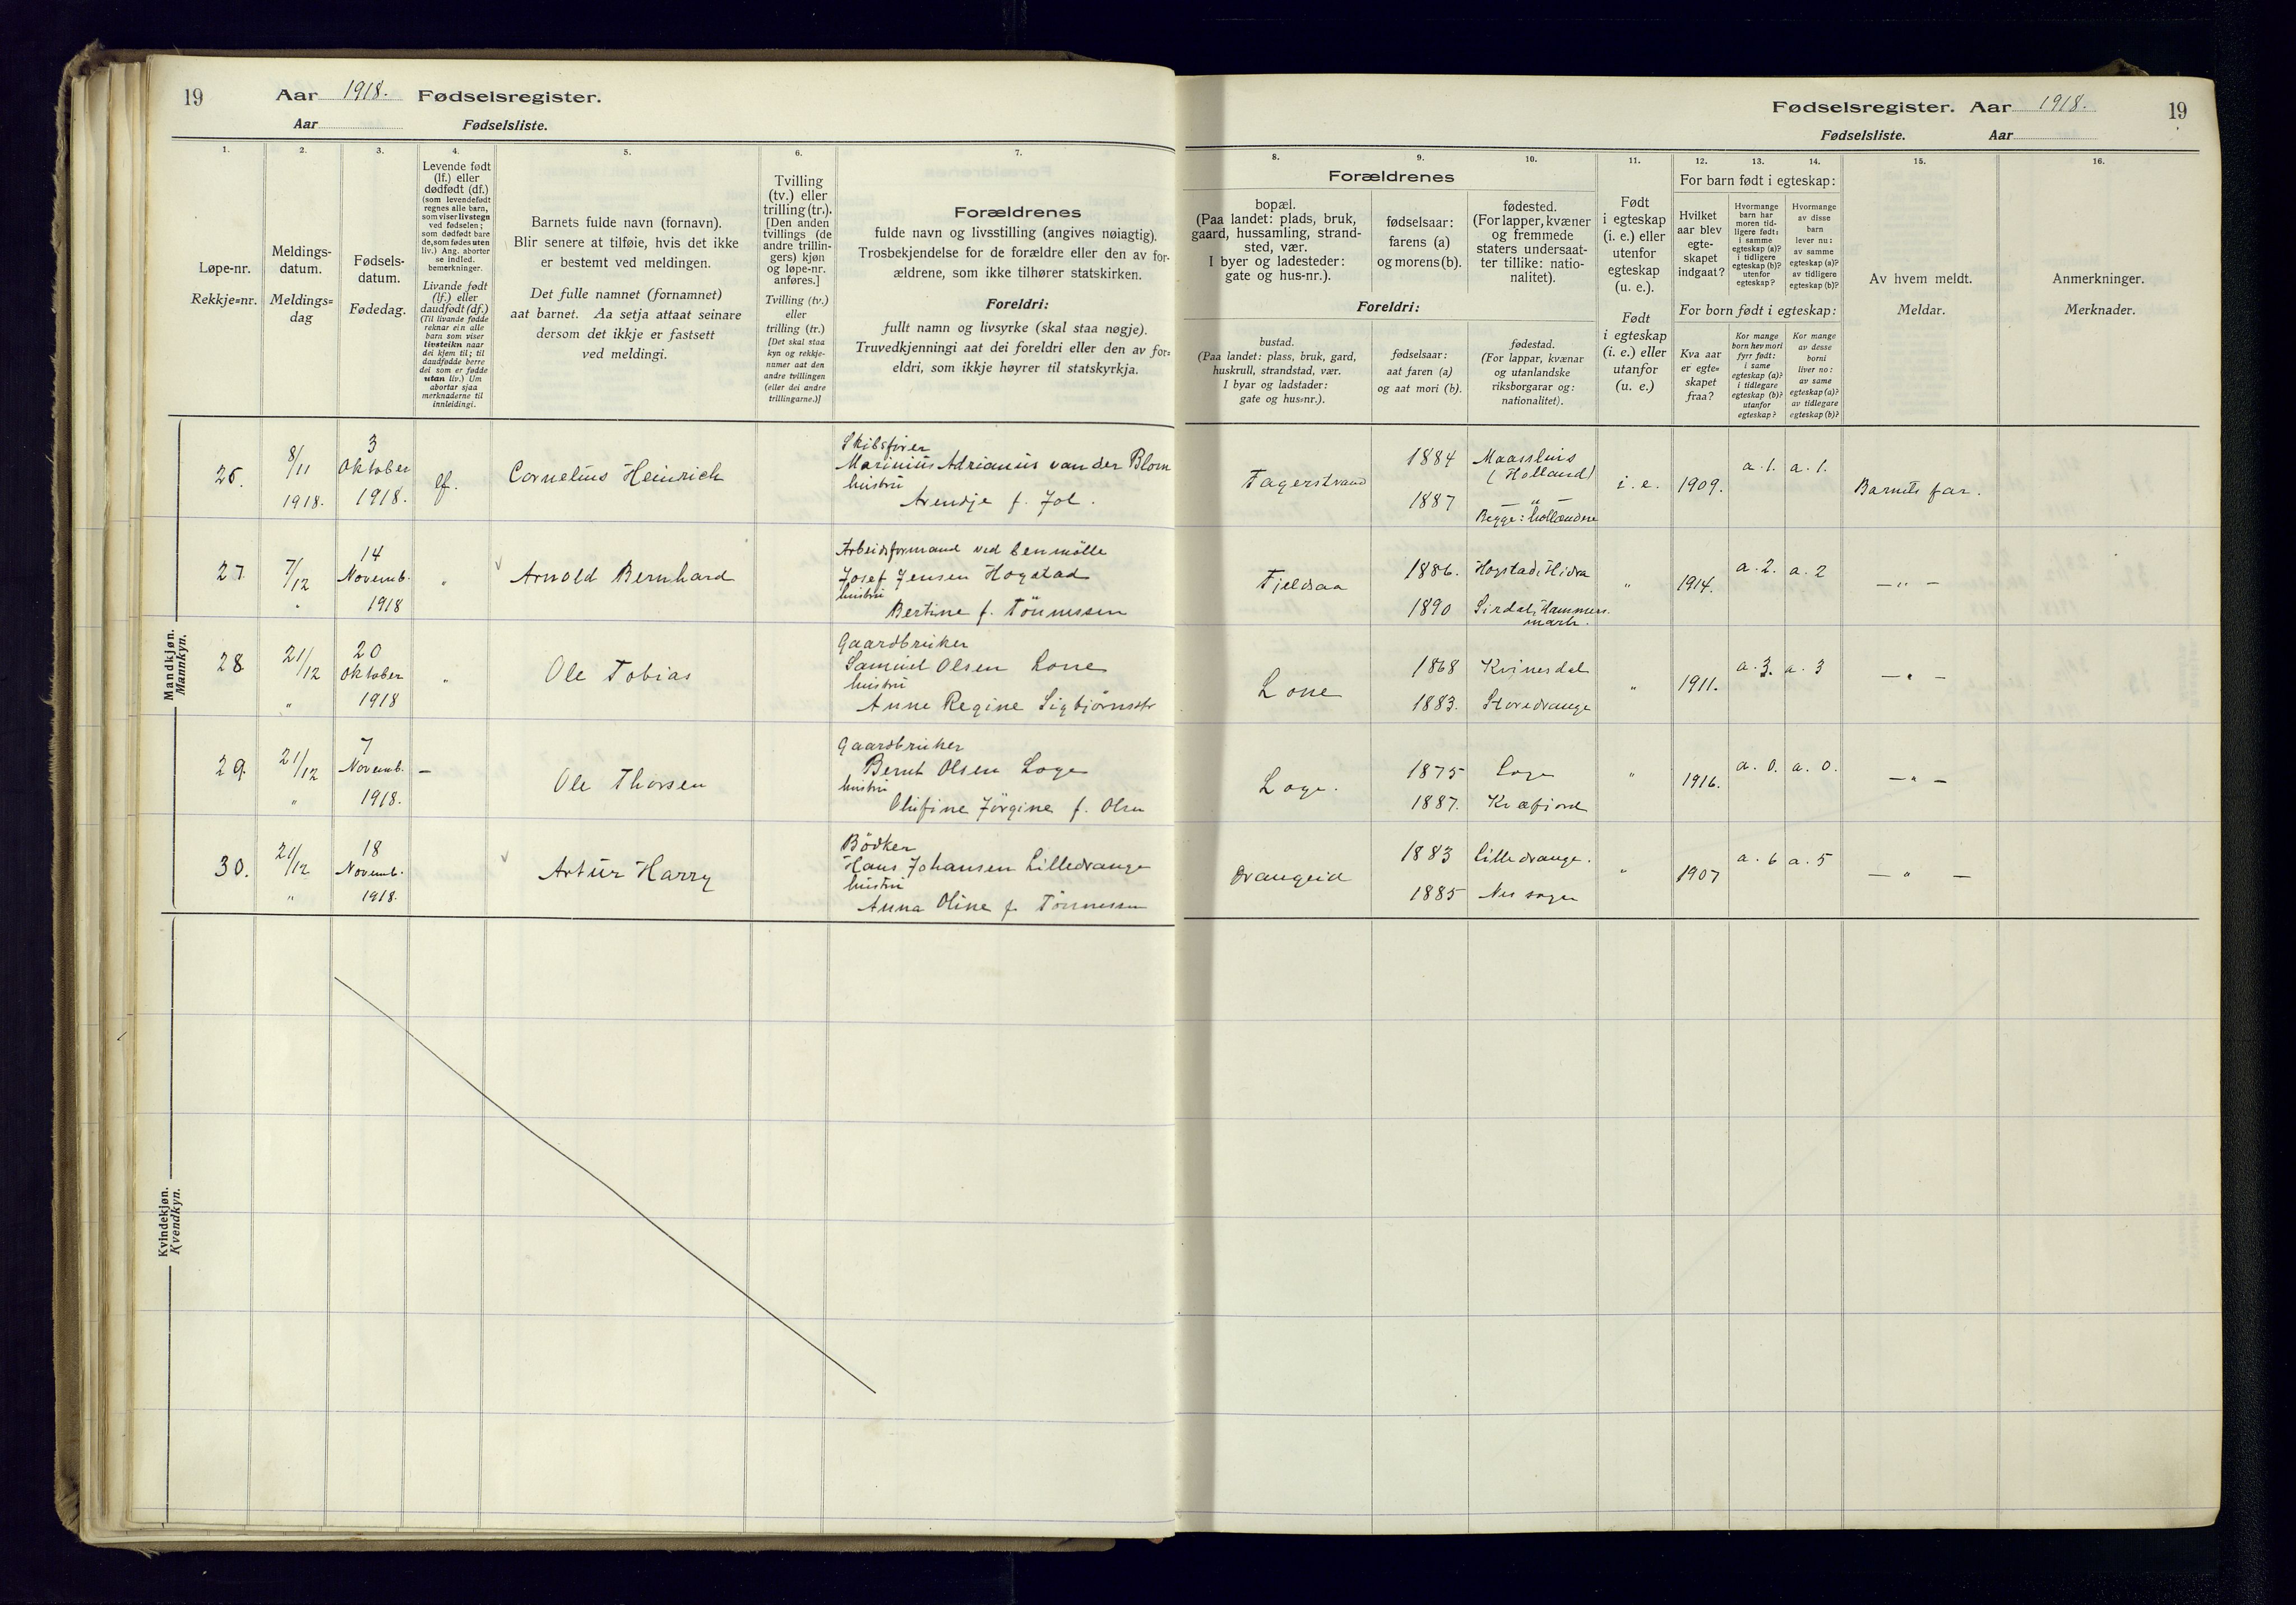 19
Aar 1918. Fødselsregister.
Aar Fødselsliste.
1.
Løpe-nr.
Rekkje=nr.
2.
Meldings-
datum.
Meldings=
dag
3.
Fødsels-
datum.
Fødedag.
4.
Levende født
(lf.) eller
dødfødt (df.)
(som levendefødt
regnes alle barn,
som viser livstegn
ved fødselen;
som dødfødt bare
de, som fødes uten
liv.) Ang. aborter
se indled.
bemerkninger.
Livande født
(lf.) eller
daudfødt (df.)
(Til livande fødde
reknar ein alle
barn som viser
livsteikn naar
dei kjem til; til
daudfødde berre
dei som er fødde
utan liv.) Um
abortar sjaa
merknaderne til
innleidingi.
5.
Barnets fulde navn (fornavn).
Blir senere at tilføie, hvis det ikke
er bestemt ved meldingen.
Det fulle namnet (fornamnet)
aat barnet. Aa setja attaat seinare
dersom det ikkje er fastsett
ved meldingi.
6.
Tvilling
(tv.) eller
trilling (tr.).
[Den anden
tvillings (de
andre trillin-
gers) kjøn
og løpe-nr.
anføres.]
Tvilling (tv.)
eller
trilling (tr.)
[Det skal staa
kyn og rekkje-
numer aat den
andre tvillingen
(eller dei andre
trillingarne.)]
7.
Forældrenes
fulde navn og livsstilling (angives nøiagtig).
Trosbekjendelse for de forældre eller den av for-
ældrene, som ikke tilhører statskirken.
Foreldri:
fullt namn og livsyrke (skal staa nøgje).
Truvedkjenningi aat dei foreldri eller den av for=
eldri, som ikkje høyrer til statskyrkja.
Mandkjøn.
Mannkyn.
26.
8/11
1918.
3
Oktober
1918.
lf.
Cornelius Heinrich
Skibsfører
Marinius Adrianus van der Blom
hustru
Arendje f. Jol.
27
7/12
"
14
Novemb.
1918
"
Arnold Bernhard
Arbeidsformand ved benmölle
Josef Jensen Hogstad
hustru
Bertine f. Tönnessen
28
21/12
"
20
Oktober
1918
"
Ole Tobias
Gaardbruker
Samuel Olsen Lone
hustru
Anne Regine Sigbjørnsdtr
29.
21/12
"
7
Novemb.
1918.
–
Ole Thorsen
Gaardbruker
Bernt Olsen Loge
hustru
Olufine Jörgine f. Olsen
30.
21/12
"
18
Novemb.
1918.
Artur Harry
Bödker
Hans Johansen Lilledrange
hustru
Anna Oline f. Tönnessen
Kvindekjøn.
Kvendkyn.
Fødselsregister. Aar 1918.
19
Fødselsliste. Aar
8.
Forældrenes
bopæl.
(Paa landet: plads, bruk,
gaard, hussamling, strand-
sted, vær.
I byer og ladesteder:
gate og hus-nr.).
9.
fødselsaar:
farens (a)
og morens (b).
10.
fødested.
(For lapper, kvæner
og fremmede
staters undersaat-
ter tillike: natio-
nalitet).
Foreldri:
bustad.
(Paa landet: plass, bruk, gard,
huskrull, strandstad, vær.
I byar og ladstader:
gate og hus=nr.).
fødselsaar:
aat faren (a)
og aat mori (b).
fødestad.
(For lappar, kvænar
og utanlandske
riksborgarar og:
nationalitet).
11.
Født
i egteskap
(i. e.) eller
utenfor
egteskap
(u. e.).
Født
i egteskap
(i. e.) eller
utanfor
(u. e.)
12.
13.
14.
For barn født i egteskap:
Hvilket
aar blev
egte-
skapet
indgaat?
Hvormange
barn har
moren tid-
ligere født:
i samme
egteskap (a)?
i tidligere
egteskap (b)?
utenfor
egteskap?
Hvormange
av disse
barn
lever nu:
av samme
egteskap (a)?
av tidligere
egteskap (b)?
For born født i egteskap:
Kva aar
er egte=
skapet
fraa?
Kor mange
born hev mori
fyrr født:
i same
egteskap (a)?
i tidlegare
egteskap (b)?
utanfor
egteskap?
Kor mange
av desse
borni
liver no:
av same
egteskap (a)?
av tidlegare
egteskap (b)?
15.
Av hvem meldt.
Meldar.
16.
Anmerkninger.
Merknader.
Fagerstrand
1884
1887
Maassluis
(Holland)
— " —
Begge: hollændere
i. e.
1909.
a. 1.
a. 1.
Barnets far.
Fjeldsaa
1886.
1890
Hogstad, Hidra
Sirdal, Hammers
mark.
"
1914.
a. 2.
a. 2
— " —
Lone
1868
1883.
Kvinesdal
Storedrange
"
1911.
a. 3.
a. 3
— " —
Loge.
1875
1887.
Loge
Kvæfjord
"
1916.
a. 0.
a. 0.
— " —
Drangeid
1883
1885
Lilledrange.
Nes sogn
"
1907
a. 6
a. 5
— " —